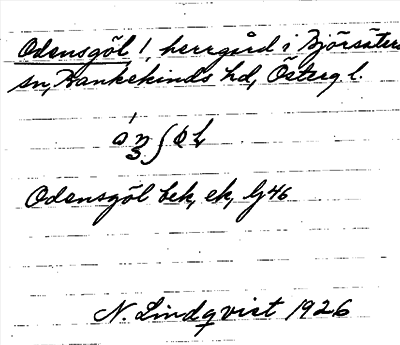 Odensgöl!, herrgård i Björsäters
sn, Bankekinds hd, Östergl.
Odensgöl bek, ek, Gj 46
N. Lindqvist 1926